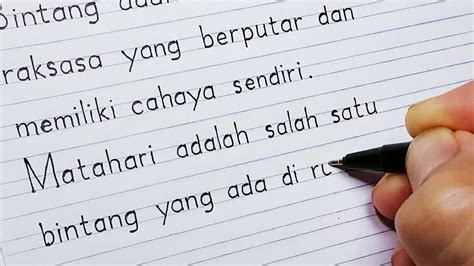 Bintang
raksasa yang berputar dan
memiliki cahaya sendiri.
Matahari adalah salah satu
bintang yang ada di ru